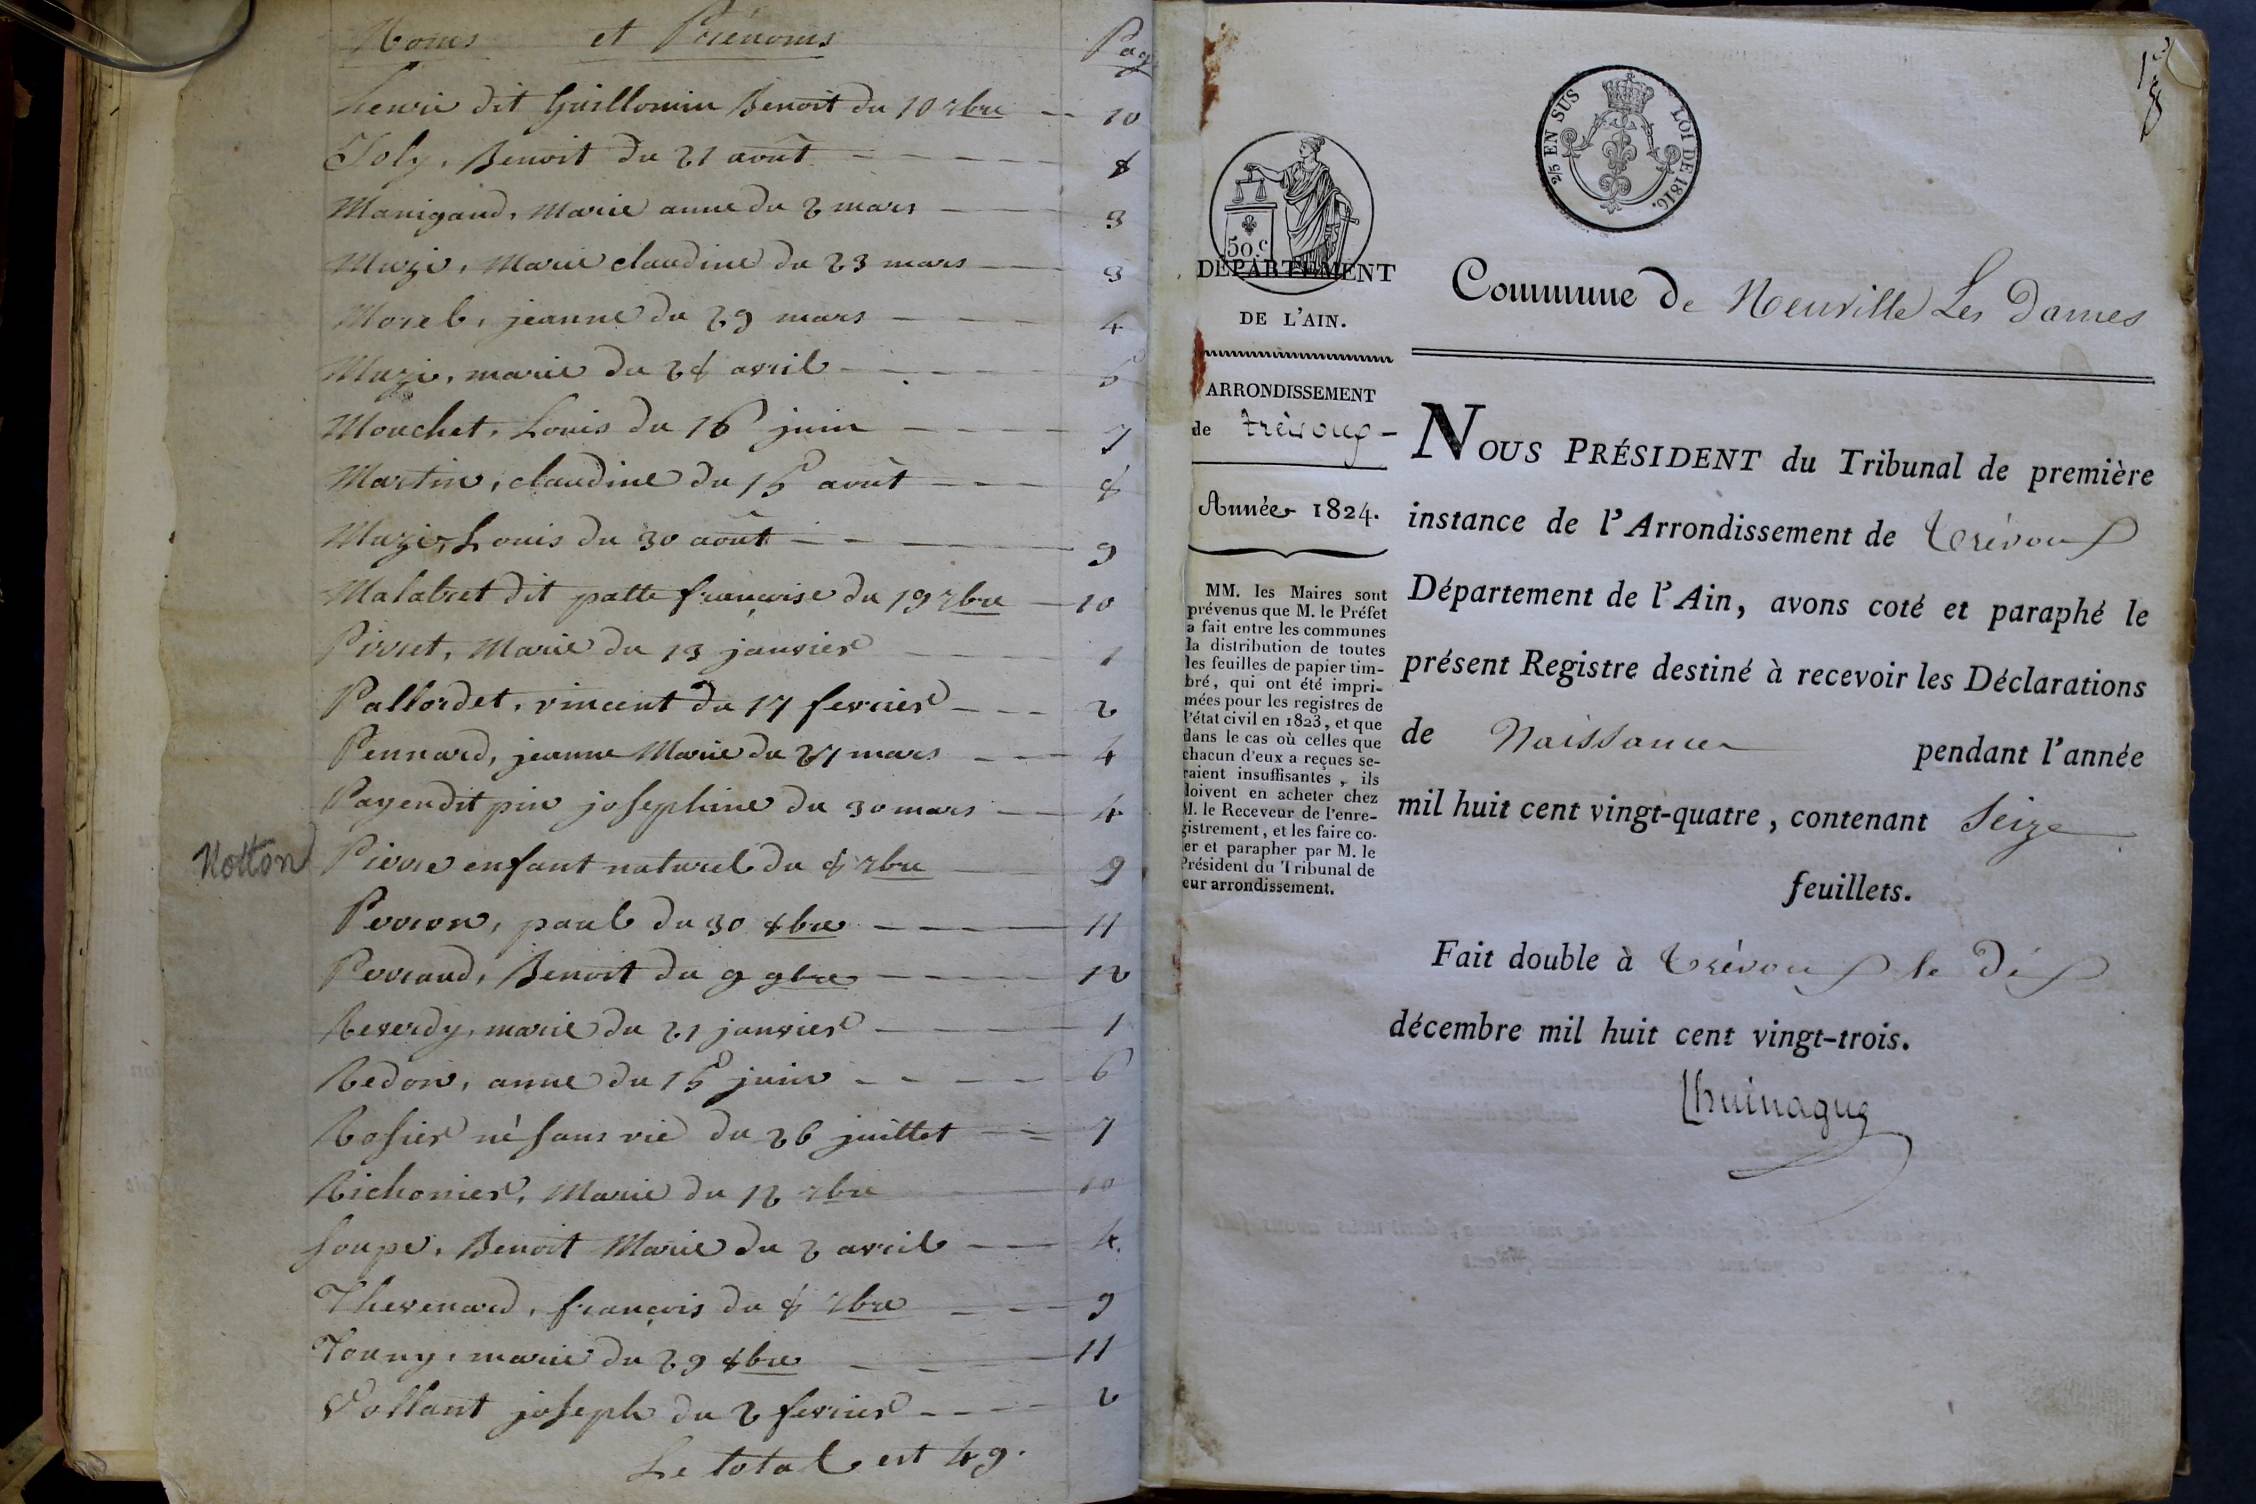 Noms et Prénoms Pag
henrie dit Guillomin Benoit du 10 7bre 10
Joly, Benoit du 21 août 8
Manigand, Marie anne du 2 mars 3
Muzi, Marie claudine du 23 mars 3
Morel, jeanne du 29 mars 4
Muzi, marie du 28 avril 5
Mouchet, Louis du 16 juin 7
Martin, claudine du 15 août 8
Muzi, Louis du 30 août 9
Malatret dit patte françoise du 19 7bre 10
Pivret, Marie du 13 janvier 1
Pallordet, vincent du 17 fevrier 2
Pennard, jeanne Marie du 27 mars 4
Pagendit pin josephine du 30 mars 4
Notton Pierre enfant naturel du 8 7bre 9
Perron, paul du 30 8bre 11
Perraud, Benoit du 9 9bre 12
Reverdy, marie du 21 janvier 1
Redon, anne du 15 juin 6
Rosier né sans vie du 26 juillet 7
Richonier, Marie du 12 7bre 10
Soupe, Benoit Marie du 2 avril 4
Thevenard, françois du 8 7bre 9
Touny, marie du 29 8bre 11
Vollant joseph du 2 fevrier 2
Le total est 49.
1er
2/5 EN SUS LOI DE 1816.
50.c
DÉPARTEMENT
DE L'AIN.
ARRONDISSEMENT
de trévoux
Année 1824.
MM. les Maires sont
prévenus que M. le Préfet
a fait entre les communes
la distribution de toutes
les feuilles de papier tim-
bré, qui ont été impri-
mées pour les registres de
l'état civil en 1823, et que
dans le cas où celles que
chacun d'eux a reçues se-
raient insuffisantes, ils
doivent en acheter chez
M. le Receveur de l'enre-
gistrement, et les faire co-
er et parapher par M. le
Président du Tribunal de
eur arrondissement.
Commune de Neuville Les Dames
NOUS PRÉSIDENT du Tribunal de première
instance de l'Arrondissement de Trévoux
Département de l'Ain, avons coté et paraphé le
présent Registre destiné à recevoir les Déclarations
de Naissances pendant l'année
mil huit cent vingt-quatre, contenant Seize
feuillets.
Fait double à Trévoux le dix
décembre mil huit cent vingt-trois.